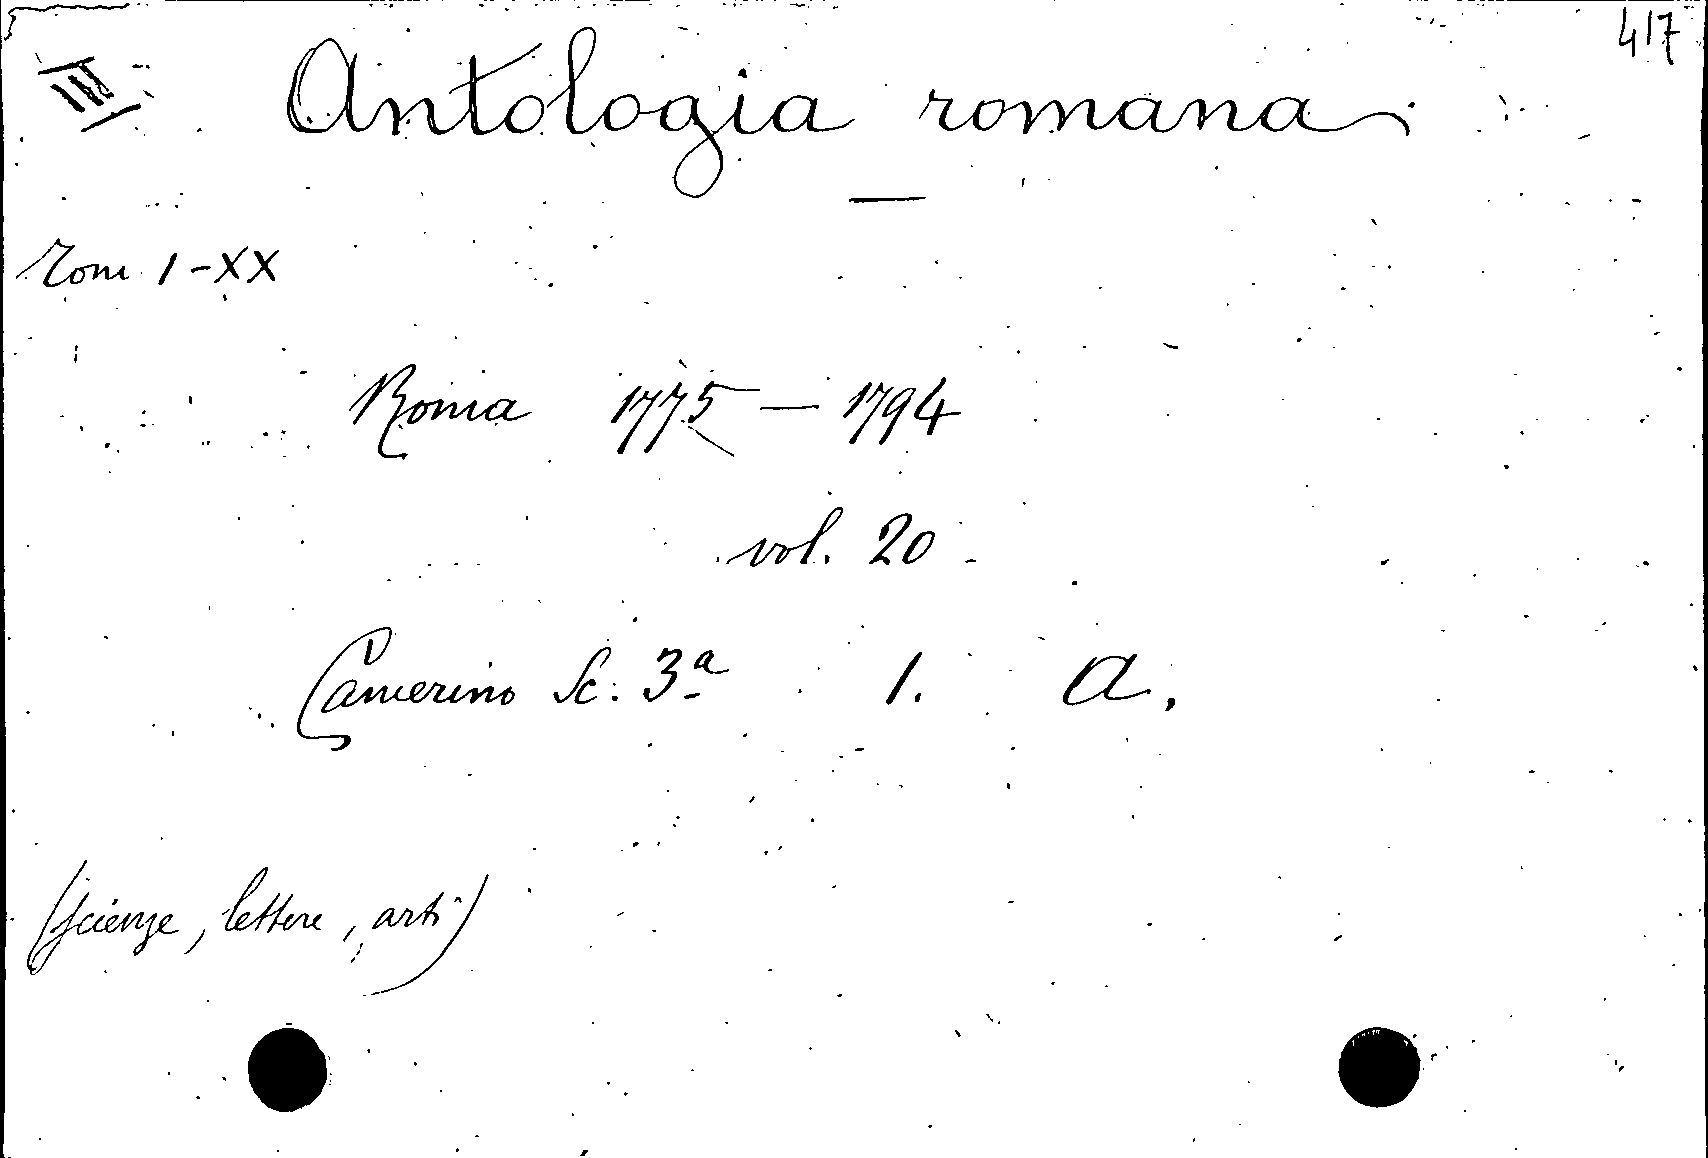 417
III Antologia romana
Tom. I-XX
Roma 1775 — 1794
vol. 20
Camerino Sc. 3ª 1. A.
(scienze, lettere, arti)